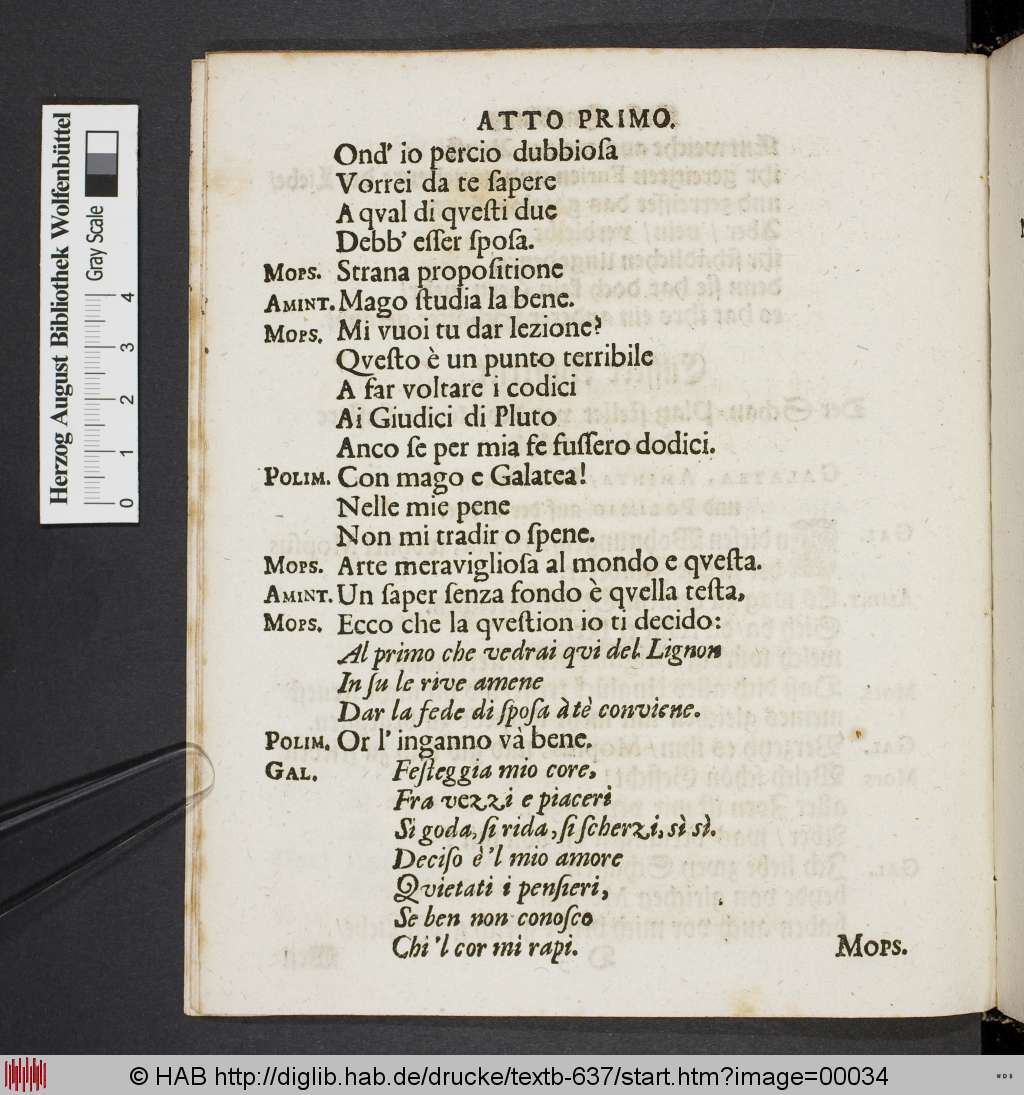 ATTO PRIMO.
Ond' io percio dubbioſa
Vorrei da te ſapere
A qval di qveſti due
Debb' eſſer ſpoſa.
MOPS. Strana propoſitione
AMINT. Mago ſtudia la bene.
MOPS. Mi vuoi tu dar lezione?
Qveſto è un punto terribile
A far voltare i codici
Ai Giudici di Pluto
Anco ſe per mia fe fuſſero dodici.
POLIM. Con mago e Galatea!
Nelle mie pene
Non mi tradir o ſpene.
MOPS. Arte meraviglioſa al mondo e qveſta.
AMINT. Un ſaper ſenza fondo è qvella teſta,
MOPS. Ecco che la qveſtion io ti decido:
Al primo che vedrai qvi del Lignon
In ſu le rive amene
Dar la fede di ſpoſa à tè conviene.
POLIM. Or l' inganno và bene.
GAL. Feſteggia mio core,
Fra vezzi e piaceri
Si goda, ſi rida, ſi ſcherzi, sì sì.
Deciſo è 'l mio amore
Qvietati i penſieri,
Se ben non conoſco
Chi 'l cor mi rapi.
MOPS.
Herzog August Bibliothek Wolfenbüttel
Gray Scale
0 1 2 3 4
© HAB http://diglib.hab.de/drucke/textb-637/start.htm?image=00034